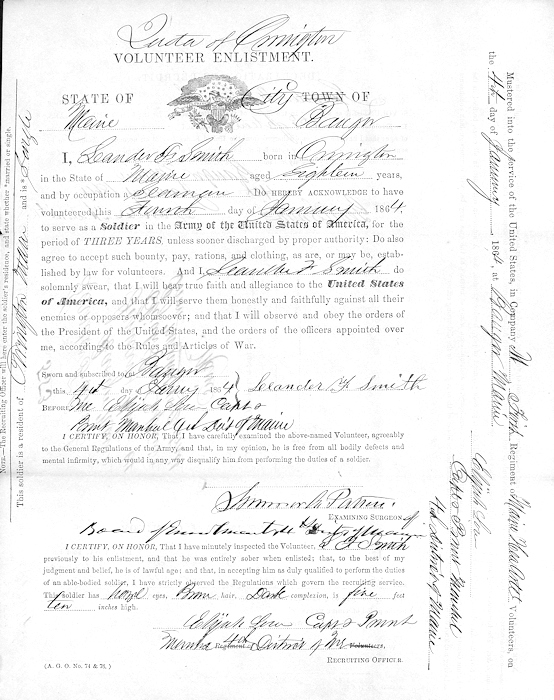 Quota of Orrington
VOLUNTEER ENLISTMENT.
STATE OF City TOWN OF
Maine Bangor
I, Leander F. Smith born in Orrington
in the State of Maine aged Eighteen years,
and by occupation a Seaman Do HEREBY ACKNOWLEDGE to have
volunteered this Fourth day of January 1864,
to serve as a Soldier in the Army of the United States of America, for the
period of THREE YEARS, unless sooner discharged by proper authority: Do also
agree to accept such bounty, pay, rations, and clothing, as are, or may be, estab-
lished by law for volunteers. And I, Leander F. Smith do
solemnly swear, that I will bear true faith and allegiance to the United States
of America, and that I will serve them honestly and faithfully against all their
enemies or opposers whomsoever; and that I will observe and obey the orders of
the President of the United States, and the orders of the officers appointed over
me, according to the Rules and Articles of War.
Sworn and subscribed to, at Bangor
this 4th day 1864 Leander F Smith
BEFORE me Elijah Low Capt &
Provt Marshal 4th Dist of Maine
I CERTIFY, ON HONOR, That I have carefully examined the above-named Volunteer, agreeably
to the General Regulations of the Army, and that, in my opinion, he is free from all bodily defects and
mental infirmity, which would in any way disqualify him from performing the duties of a soldier.
EXAMINING SURGEON of
Board of Enrolment 4th District Maine
I CERTIFY, ON HONOR, That I have minutely inspected the Volunteer, L F Smith
previously to his enlistment, and that he was entirely sober when enlisted; that, to the best of my
judgment and belief, he is of lawful age; and that, in accepting him as duly qualified to perform the duties
of an able-bodied soldier, I have strictly observed the Regulations which govern the recruiting service.
This soldier has hazel eyes, Brown hair, Dark complexion, is five feet
ten inches high.
Elijah Low Capt & Provt
Marshal 4th Regiment of District of Me Volunteers,
RECRUITING OFFICER.
(A. G. O. No. 74 & 76.)
NOTE.—The Recruiting Officer will have enter the soldier's residence, and state whether "married or single.
This soldier is a resident of Orrington Maine and is *Single
Mustered into the service of the United States, in Company M First Regiment Maine Volunteers, on
the 4th day of January 1864, at Bangor Maine
Elijah Low
Capt & Provt Marshal
4th District of Maine